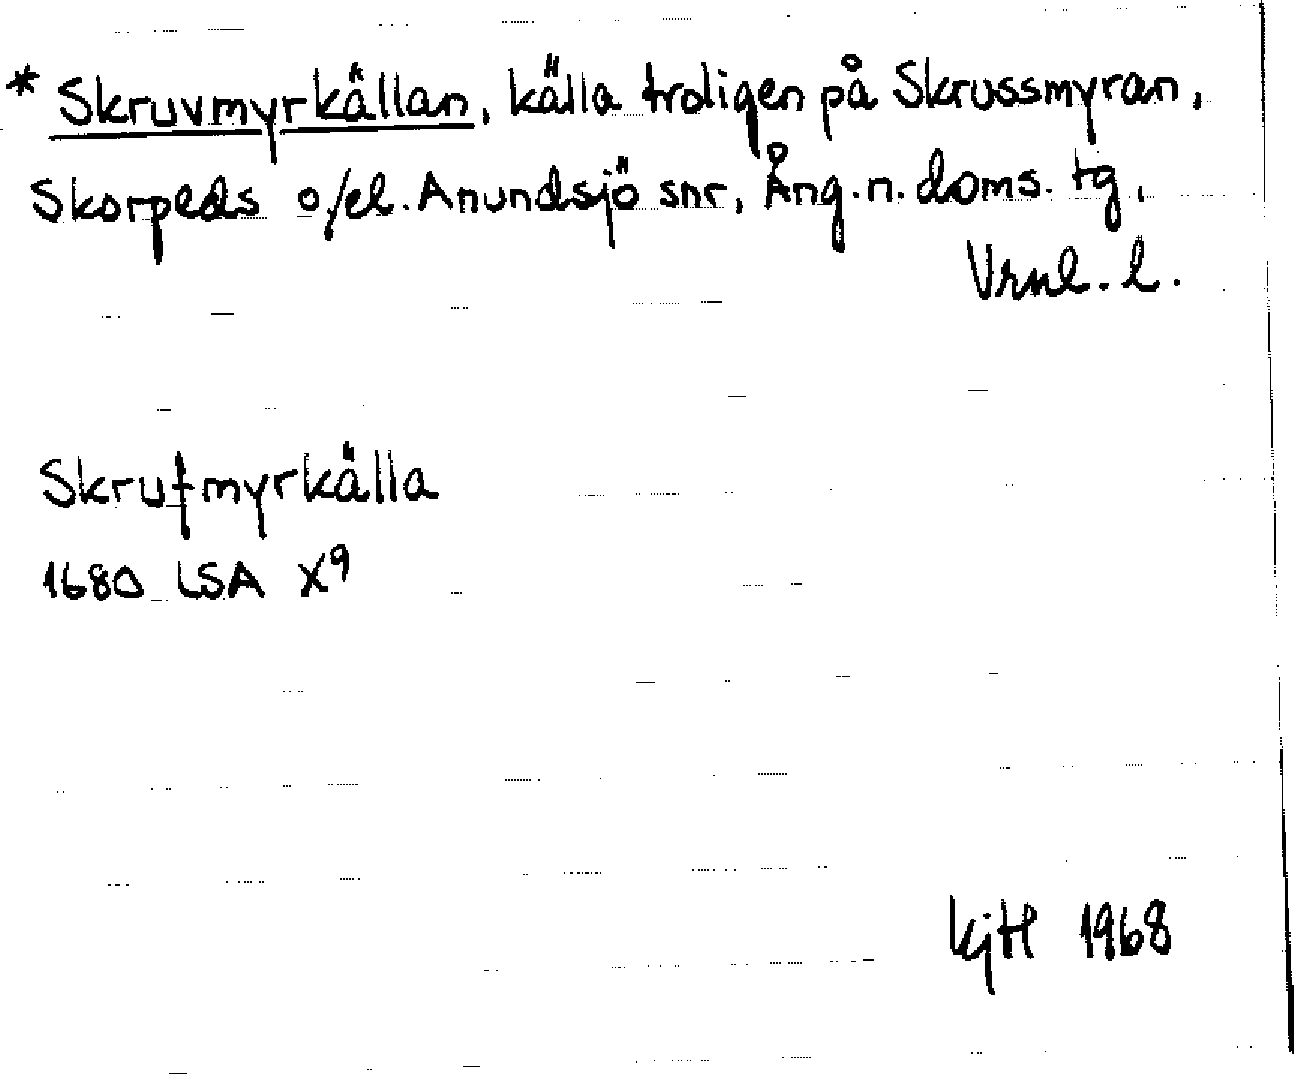 * Skruvmyrkällan, källa troligen på Skrussmyran,
Skorpeds o/el. Anundsjö snr, Ång.n.doms.tg,
Vrnl. l.
Skrufmyrkälla
1680 LSA X9
KjH 1968